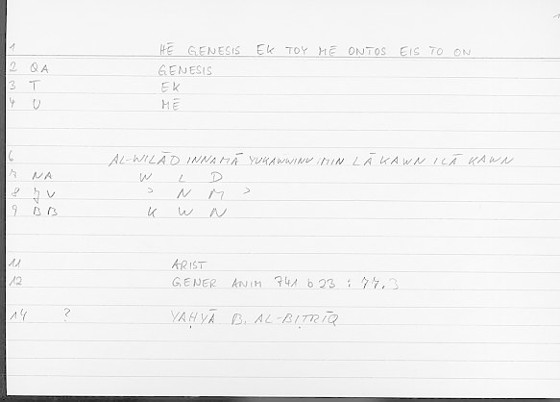 1 HĒ GENESIS EK TOY MĒ ONTOS EIS TO ON
2 QA GENESIS
3 T EK
4 U MĒ
6 AL-WILĀD INNAMĀ YUKAWWINU MIN LĀ KAWN ILĀ KAWN
7 NA W L D
8 JV ʾ N M ʾ
9 BB K W N
11 ARIST
12 GENER ANIM 741 b 23 : 77.3
14 ? YAḤYĀ B. AL-BIṬRĪQ